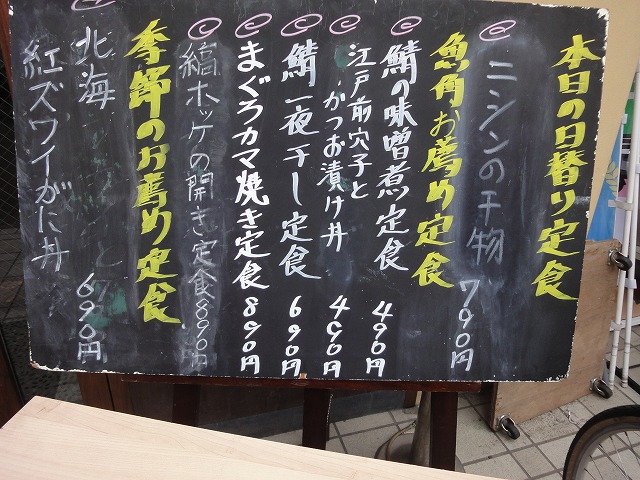 本日の日替り定食
ニシンの干物 790円
魚角お薦め定食
鯖の味噌煮定食 490円
江戸前穴子と
かつお漬け丼 490円
鯖一夜干し定食 690円
まぐろカマ焼き定食 890円
縞ホッケの開き定食 890円
季節のお薦め定食
北海 690円
紅ズワイがに丼